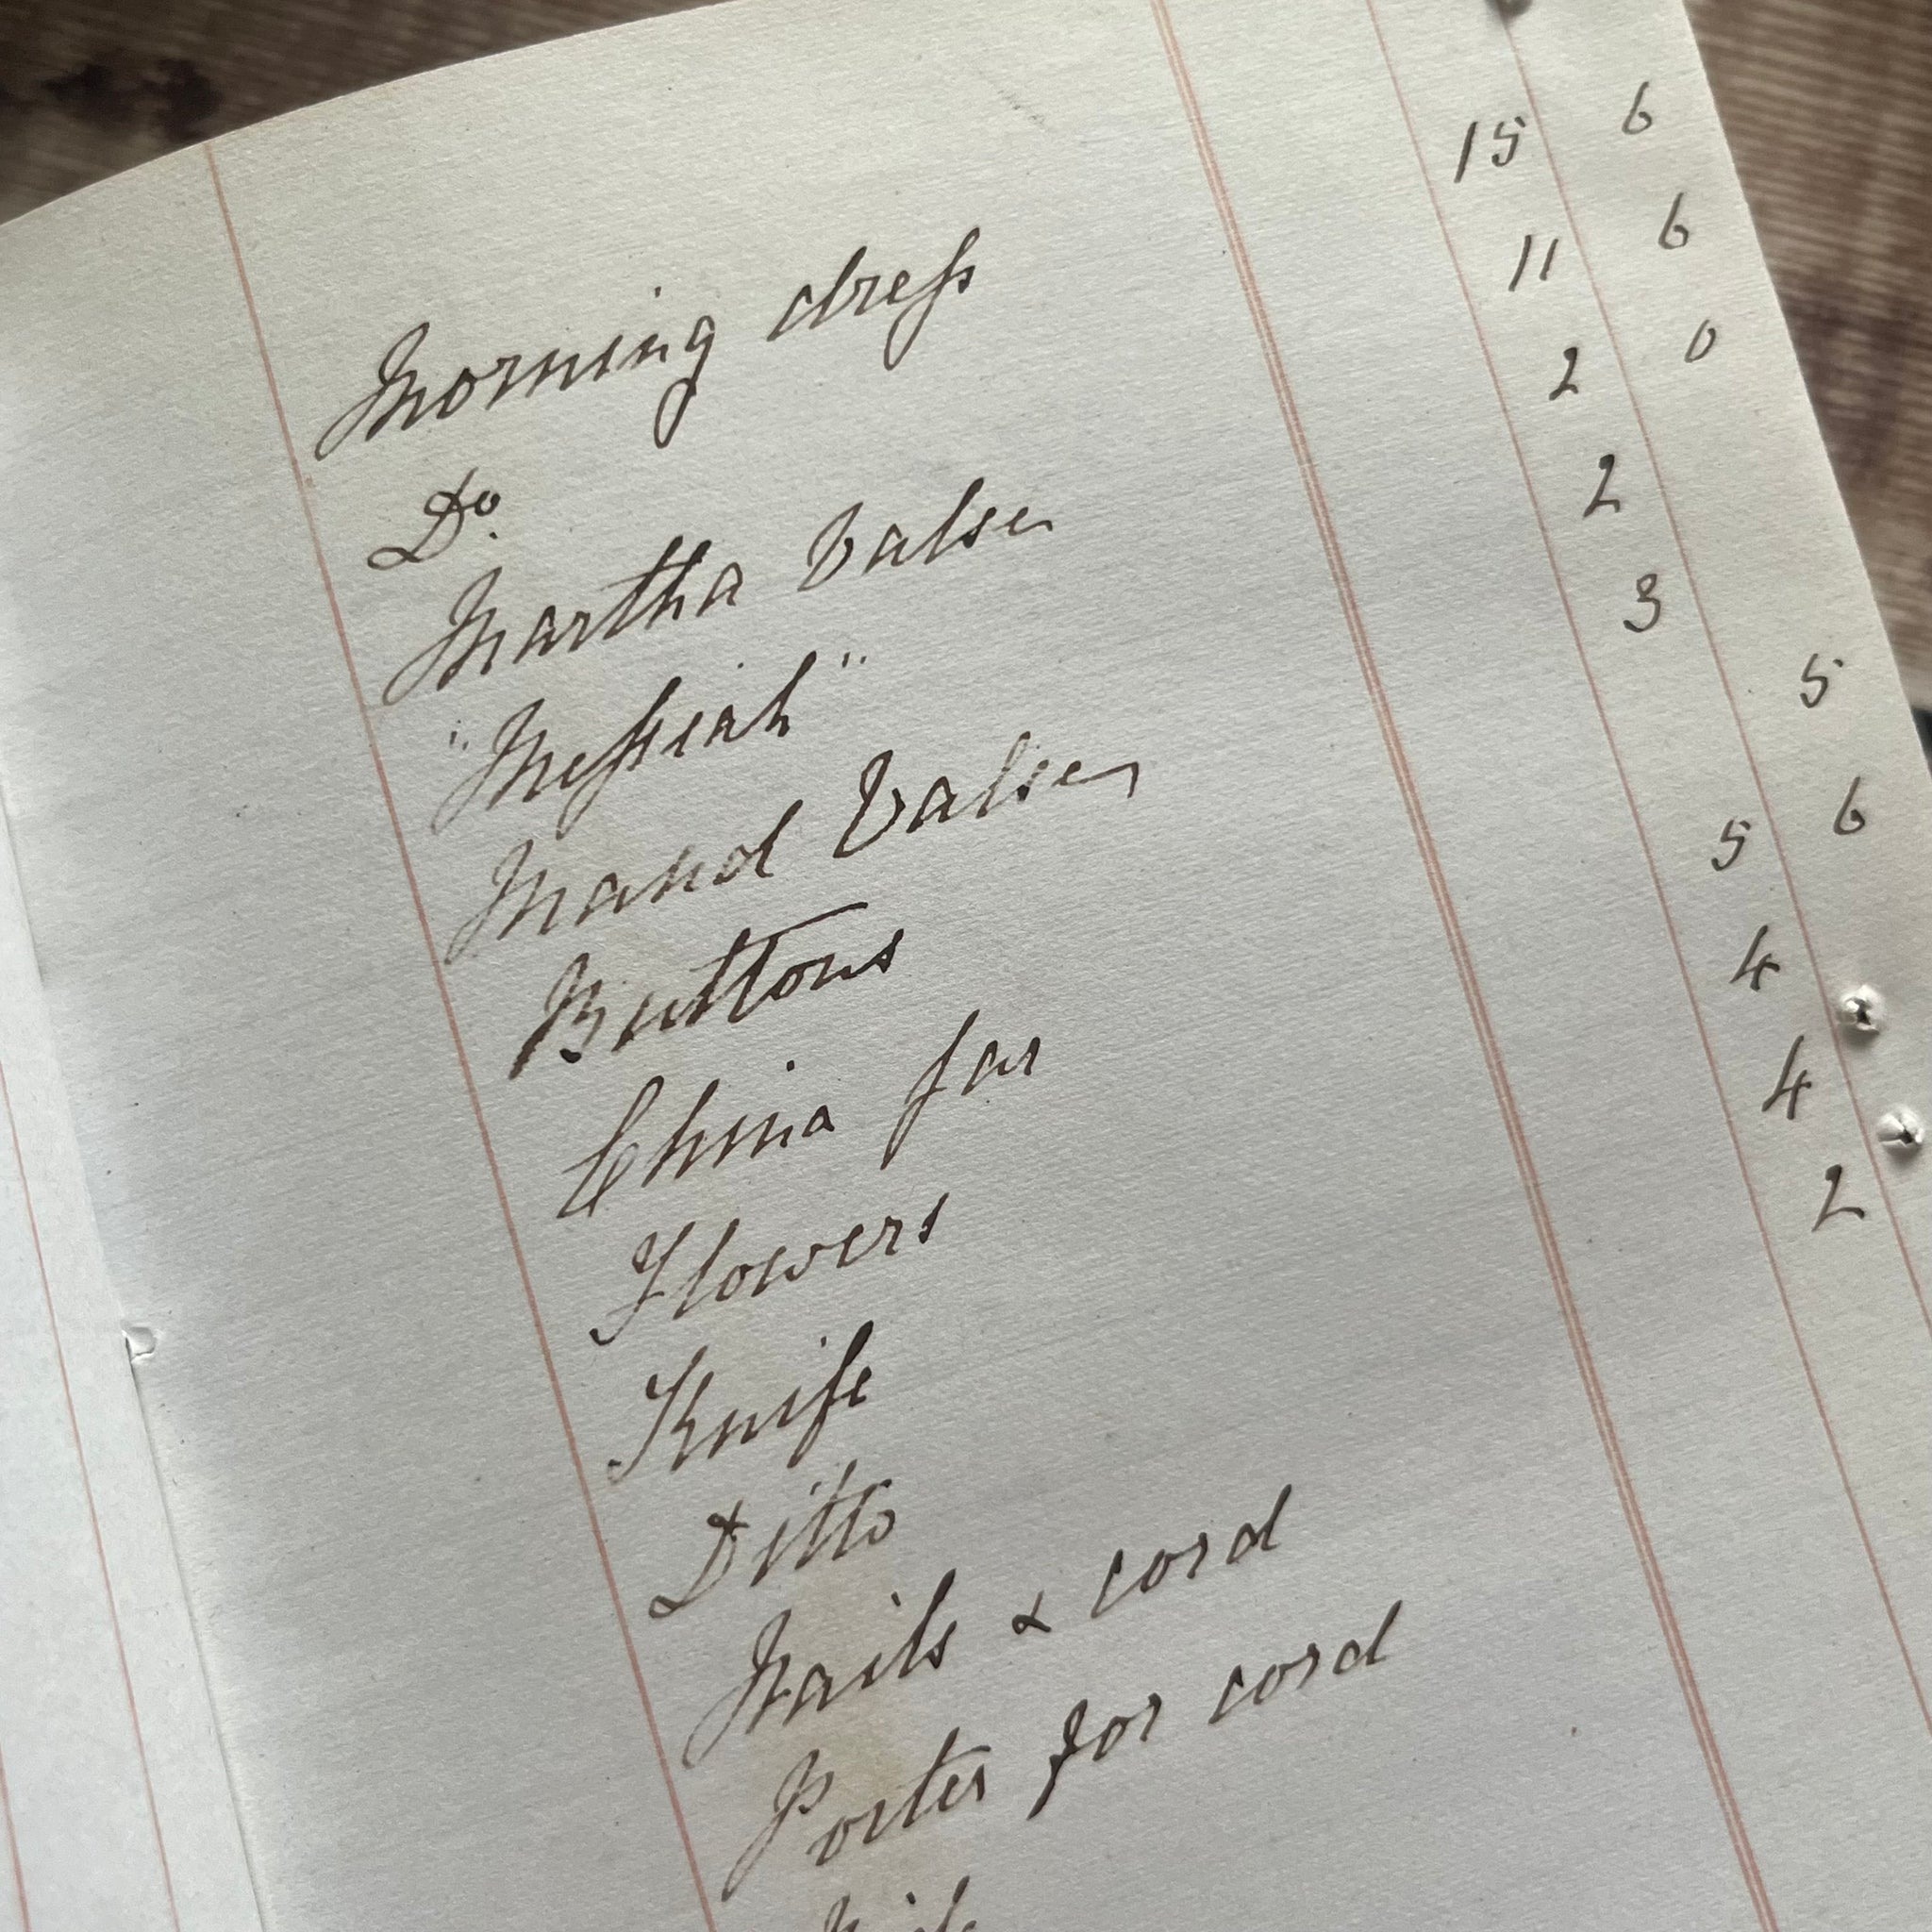 Morning dreſs 15 6
Do. 11 6
Martha Valse 2 0
"Meſsiah" 2
Maud Valse 3
Buttons 5
China Jar 5 6
Flowers 4
Knife 4
Ditto 2
Nails & cord
Porter for cord